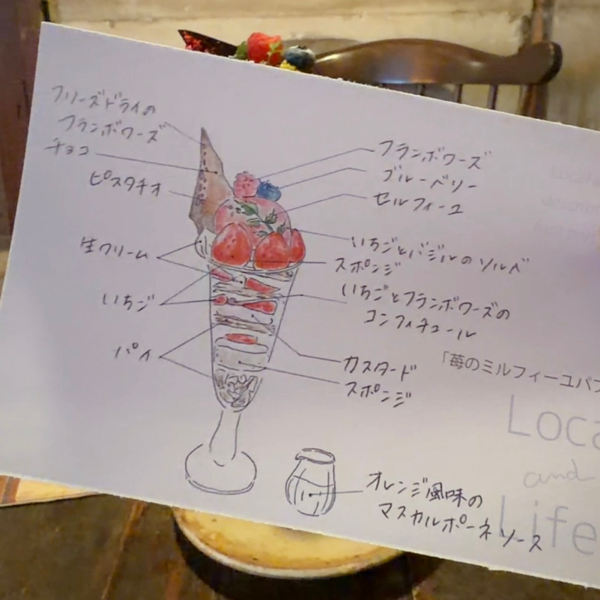 フリーズドライの
フランボワーズ
チョコ
ピスタチオ
生クリーム
いちご
パイ
フランボワーズ
ブルーベリー
セルフィーユ
いちごとバジルのソルベ
スポンジ
いちごとフランボワーズの
コンフィチュール
カスタード
スポンジ
「苺のミルフィーユパフ
オレンジ風味の
マスカルポーネソース
Loca
and
Life